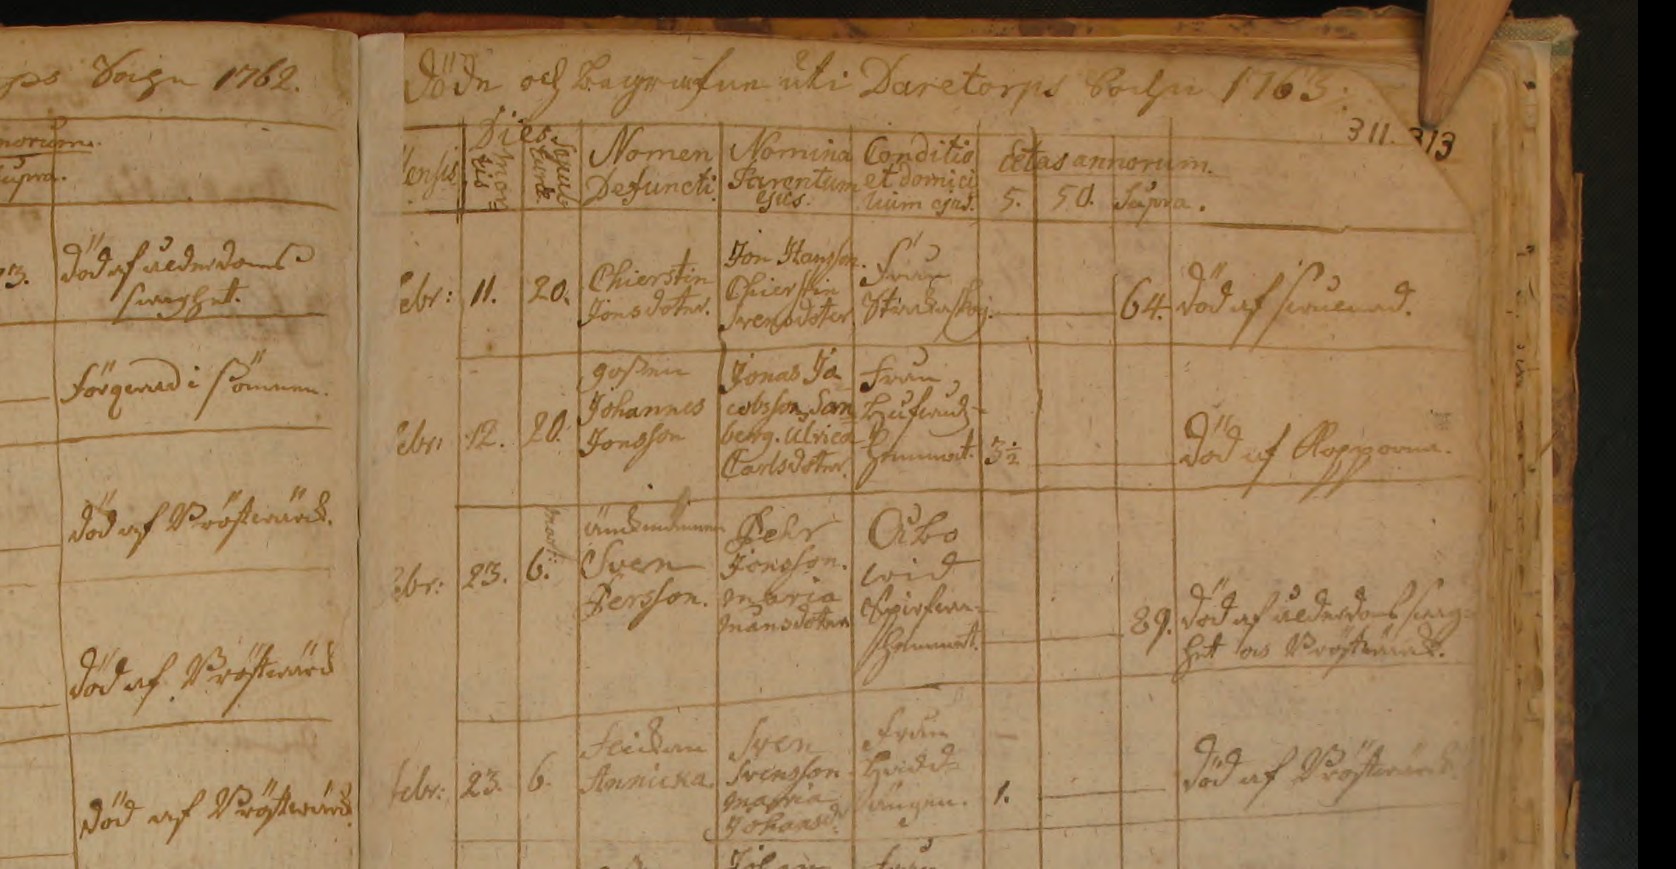 Sochn 1762.
norum.
supra.
3.
död af ålderdoms
swaghet.
förqwed i sömnen.
död af Bröstwärck.
död af Bröstwärck
död af Bröstwärck
Döde och begrafne uti Daretorps Sochn 1763.
311. 313
ensis
Dies
mor=
tis
Sepul=
turæ
Nomen
Defuncti.
Nomina
Parentum
ejus.
Conditio
et domici
lium ejus.
Ætas annorum.
5. 50. Supra.
ebr: 11. 20.
Chierstin
Jonsdoter.
Jon Hansson.
Chierstin
Svensdoter
från
64. död af
ebr: 12. 20.
gossen
Johannes
Jonsson
Jonas Ja
cobsson San
berg. Ulrica
Carlsdoter.
från
hemmet.
3½
död af Kopporna.
ebr: 23. Mart: 6.
änckmannen
Sven
Persson.
Pehr
Jonsson.
Maria
Månsdoter
Åbo
wid
hemmet.
89. död af ålderdoms swag=
het och Bröstwärck.
febr: 23. 6.
flickan
Annicka.
Sven
Svensson
Maria
Johansd:
från
ängen.
1.
död af Bröstwärck.
Johan
från